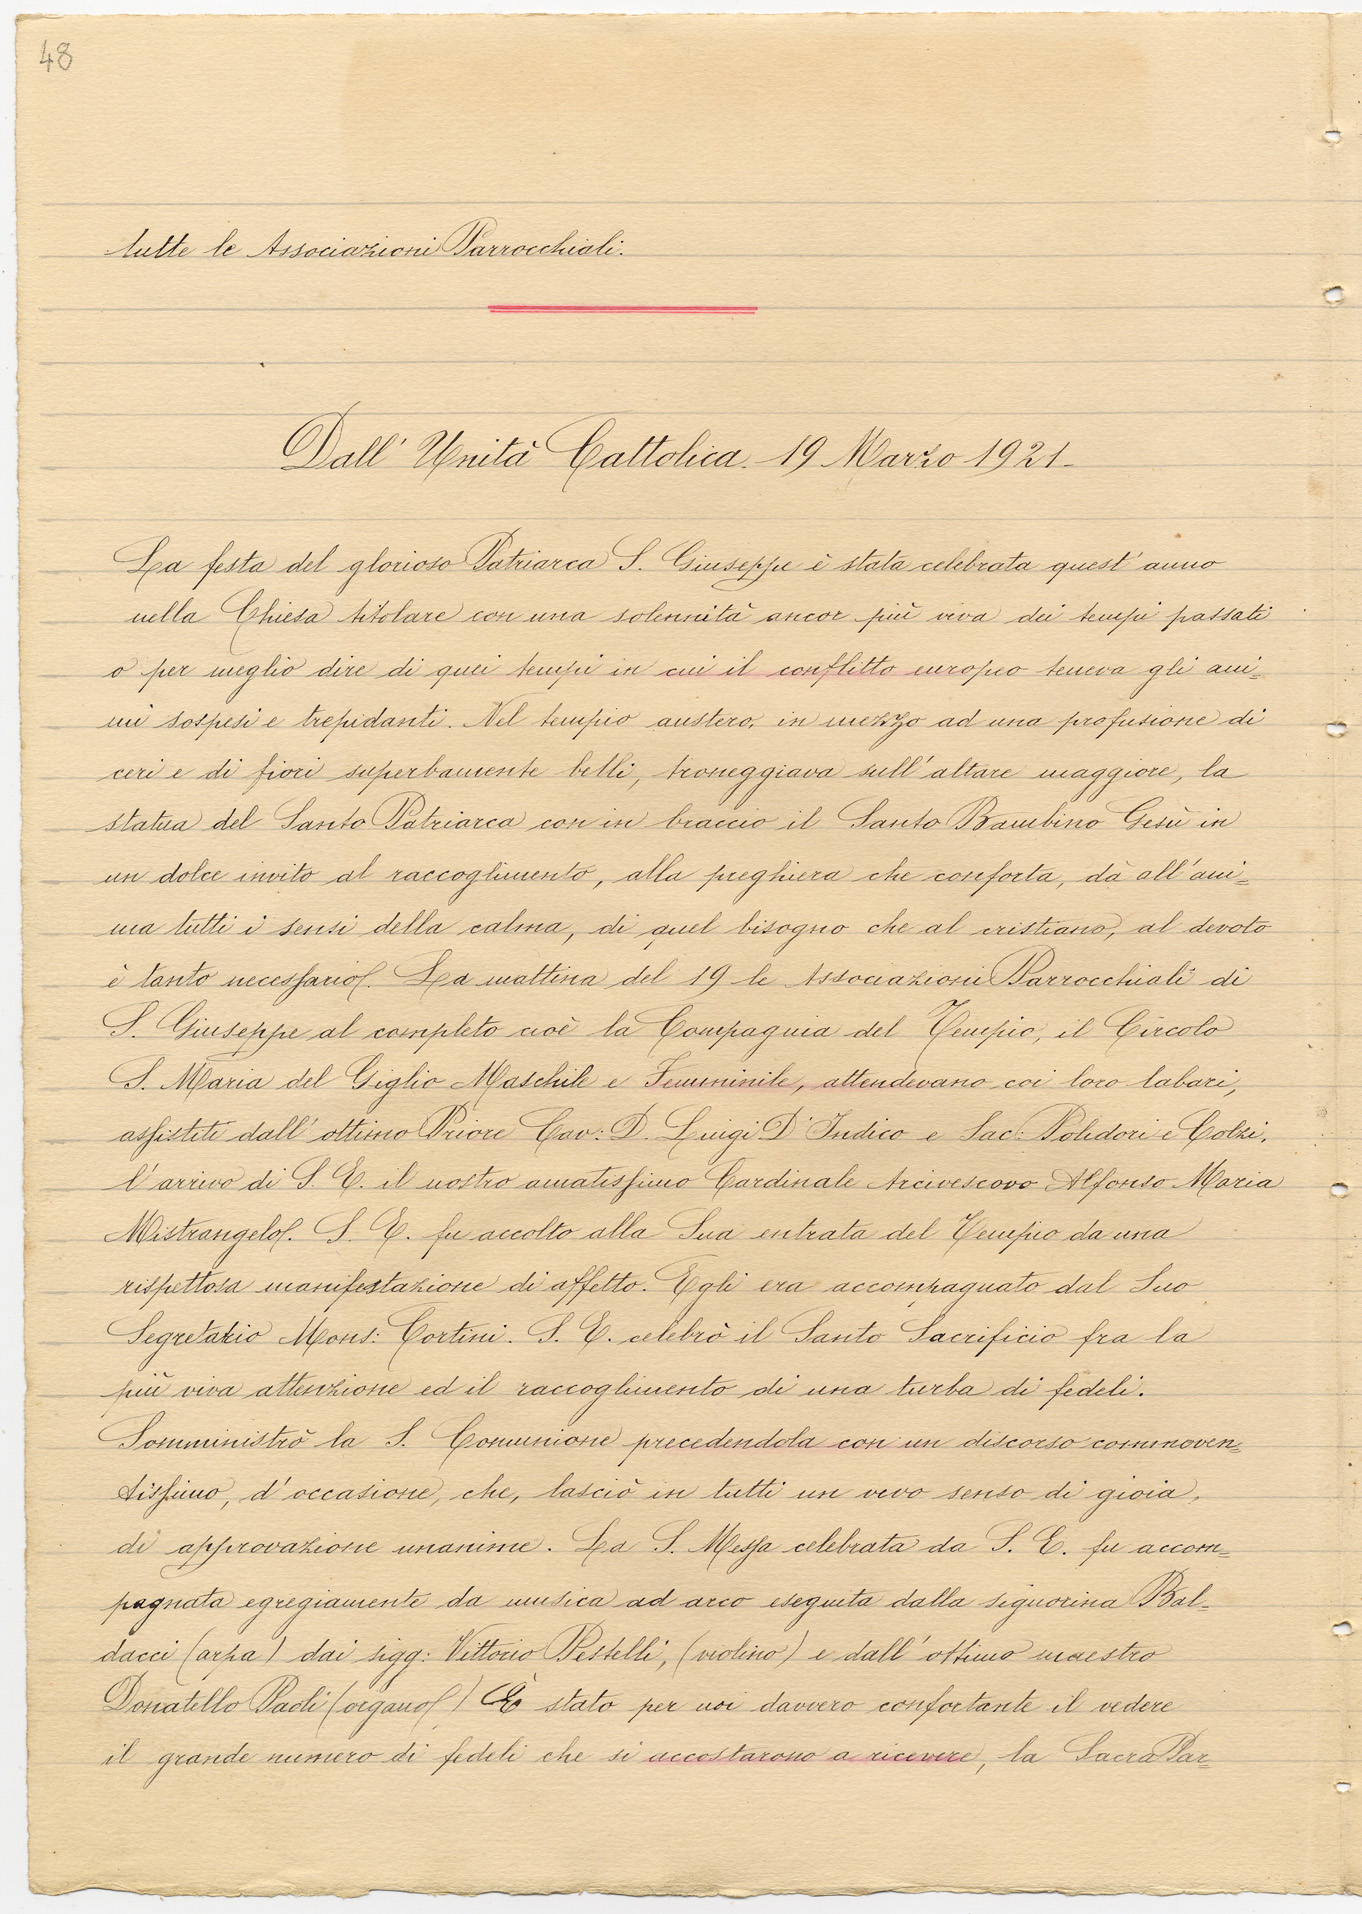 48
tutte le Associazioni Parrocchiali.
Dall' Unità Cattolica. 19 Marzo 1921.
La festa del glorioso Patriarca S. Giuseppe è stata celebrata quest'anno
nella Chiesa titolare con una solennità ancor più viva dei tempi passati
o per meglio dire di quei tempi in cui il conflitto europeo teneva gli ani=
mi sospesi e trepidanti. Nel tempio austero, in mezzo ad una profusione di
ceri e di fiori superbamente belli, troneggiava sull'altare maggiore, la
statua del Santo Patriarca con in braccio il Santo Bambino Gesù in
un dolce invito al raccoglimento, alla preghiera che conforta, dà all'ani=
ma tutti i sensi della calma, di quel bisogno che al cristiano, al devoto
è tanto necessario. La mattina del 19 le Associazioni Parrocchiali di
S. Giuseppe al completo cioè la Compagnia del Tempio, il Circolo
S. Maria del Giglio Maschile e Femminile, attendevano coi loro labari,
assistiti dall'ottimo Priore Cav: D. Luigi D'Indico e Sac: Polidori e Colzi,
l'arrivo di S. E. il nostro amatissimo Cardinale Arcivescovo Alfonso Maria
Mistrangelo. S. E. fu accolto alla Sua entrata del Tempio da una
rispettosa manifestazione di affetto. Egli era accompagnato dal Suo
Segretario Mons: Cortini. S. E. celebrò il Santo Sacrificio fra la
più viva attenzione ed il raccoglimento di una turba di fedeli.
Somministrò la S. Comunione precedendola con un discorso commoven=
tissimo, d'occasione, che, lasciò in tutti un vivo senso di gioia,
di approvazione unanime. La S. Messa celebrata da S. E. fu accom=
pagnata egregiamente da musica ad arco eseguita dalla signorina Bal=
dacci (arpa) dai sigg: Vittorio Pestelli, (violino) e dall'ottimo maestro
Donatello Paoli (organo) È stato per noi davvero confortante il vedere
il grande numero di fedeli che si accostarono a ricevere, la Sacra Par=